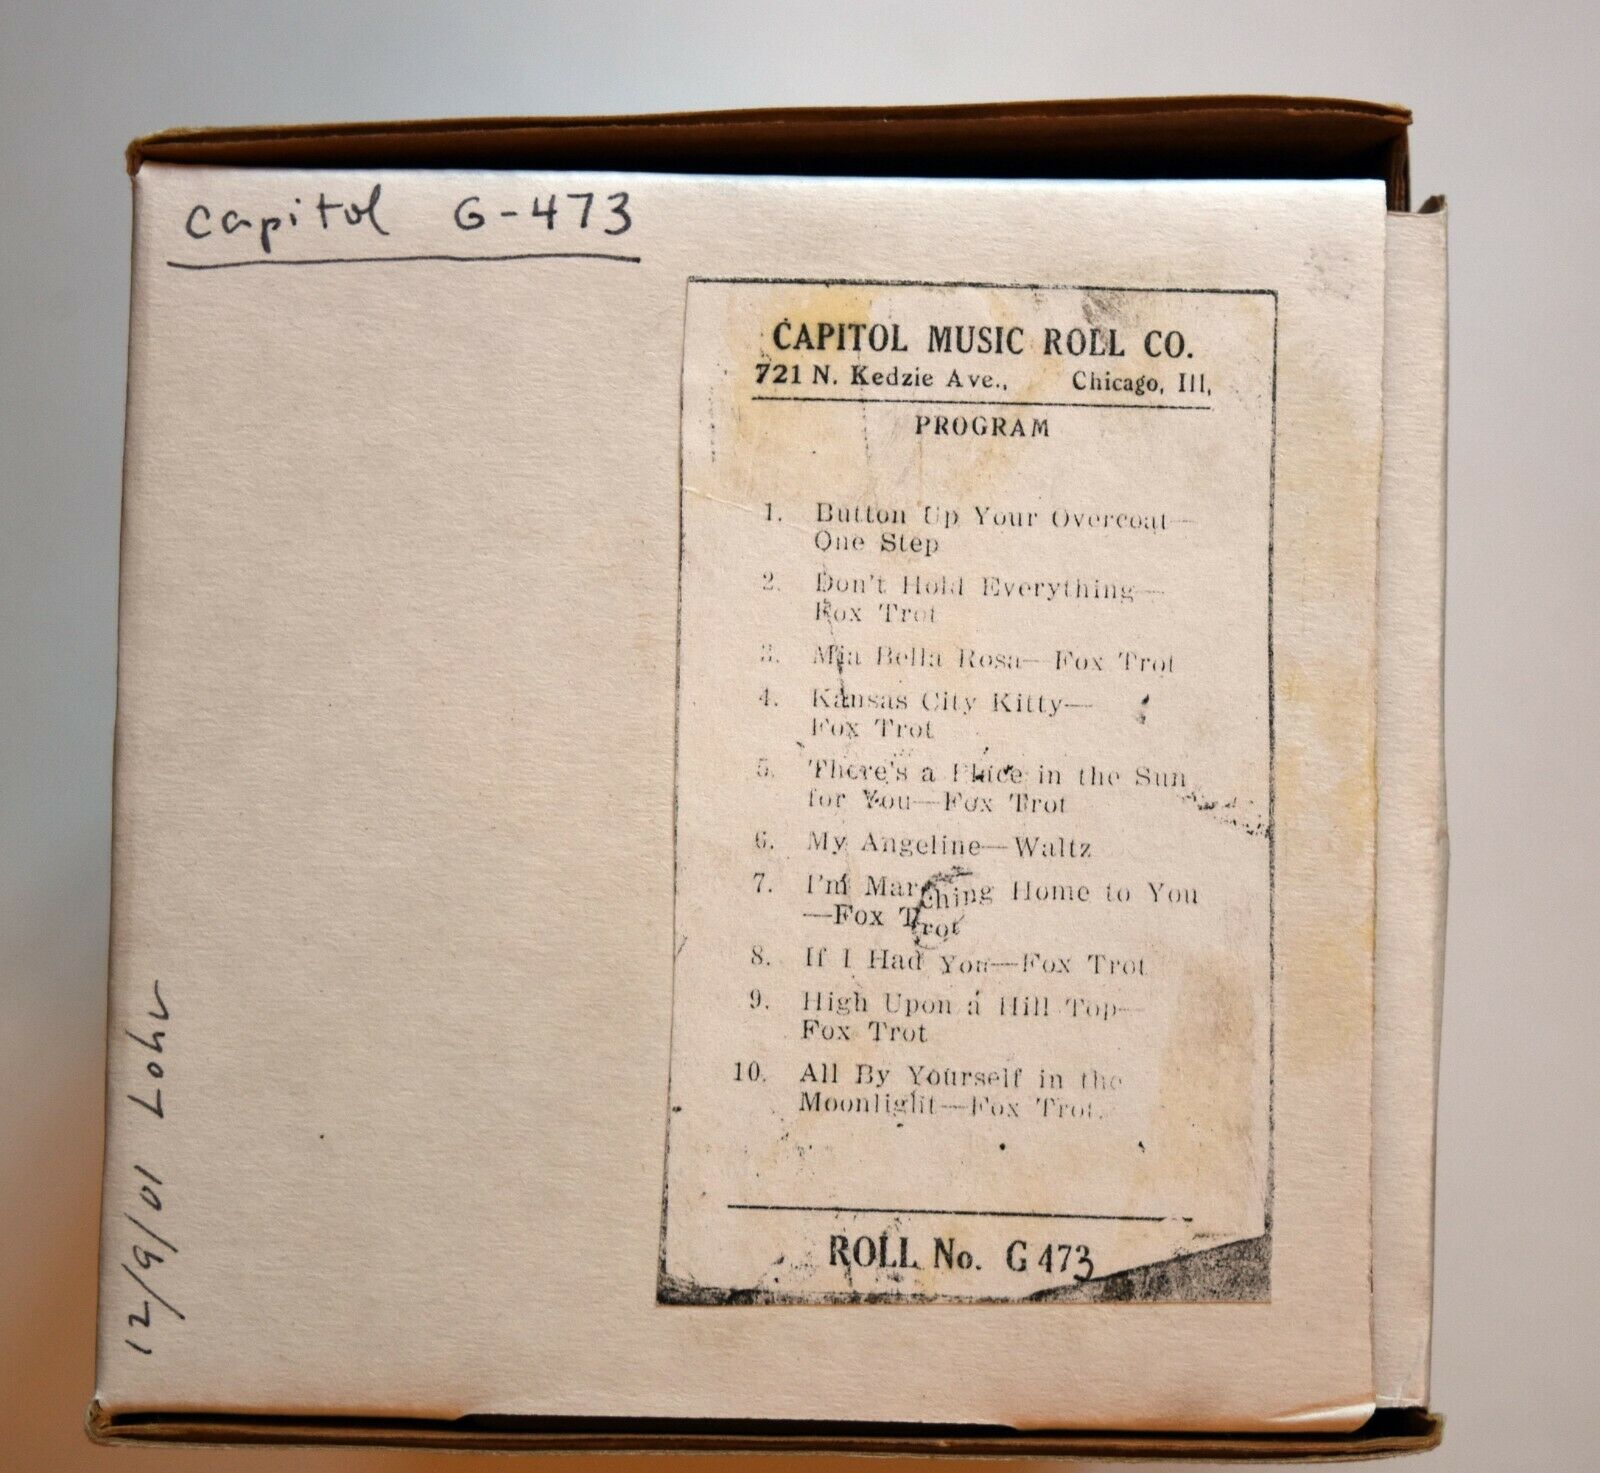 Capitol G-473
CAPITOL MUSIC ROLL CO.
721 N. Kedzie Ave., Chicago, Ill,
PROGRAM
1. Button Up Your Overcoat—
One Step
2. Don't Hold Everything—
Fox Trot
3. Mia Bella Rosa—Fox Trot
4. Kansas City Kitty—
Fox Trot
5. There's a Place in the Sun
for You—Fox Trot
6. My Angeline—Waltz
7. I'm Marching Home to You
—Fox Trot
8. If I Had You—Fox Trot
9. High Upon a Hill Top—
Fox Trot
10. All By Yourself in the
Moonlight—Fox Trot.
ROLL No. G 473
12/9/01 Lohr